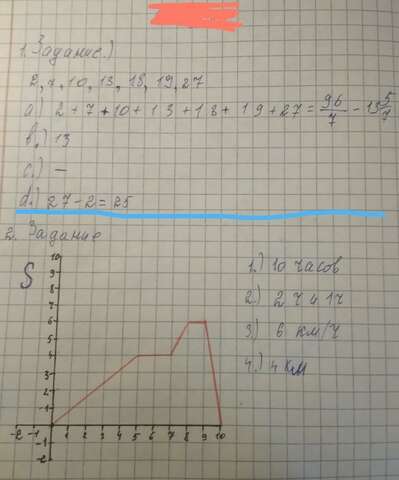 1. Задание)
2, 7, 10, 13, 18, 19, 27
a.) 2+7+10+13+18+19+27 = 96/7 - 13 5/7
b.) 13
c.) —
d.) 27-2=25
2. Задание
S
10
9
8
7
6
5
4
3
2
1
-2 -1 1 2 3 4 5 6 7 8 9 10
-1
-2
1.) 10 часов
2.) 2ч и 1ч
3) 6 км/ч
4.) 4 км